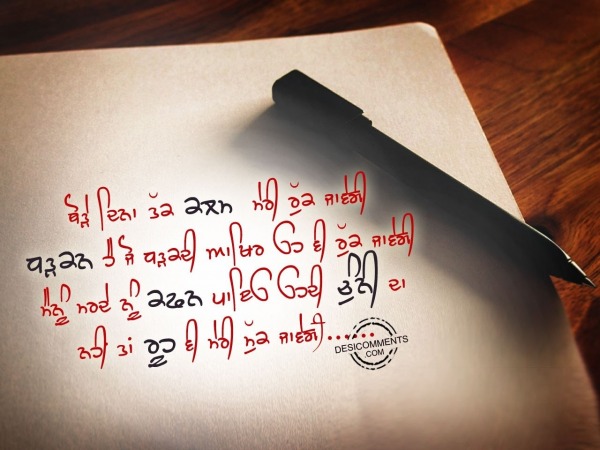 ਥੋੜੇ ਦਿਨਾ ਤੱਕ ਕਲਮ ਮੇਰੀ ਰੁੱਕ ਜਾਵੇਗੀ
ਧੜਕਨ ਹੈ ਜੋ ਧੜਕਦੀ ਆਖਿਰ ਓਹ ਵੀ ਰੁੱਕ ਜਾਵੇਗੀ
ਮੈਨੂੰ ਮਰਦੇ ਨੂੰ ਕਫਨ ਪਾਇਓ ਓਹਦੀ ਚੁੰਨੀ ਦਾ
ਨਹੀ ਤਾਂ ਰੂਹ ਵੀ ਮੇਰੀ ਸੁੱਕ ਜਾਵੇਗੀ......
DESICOMMENTS
.COM